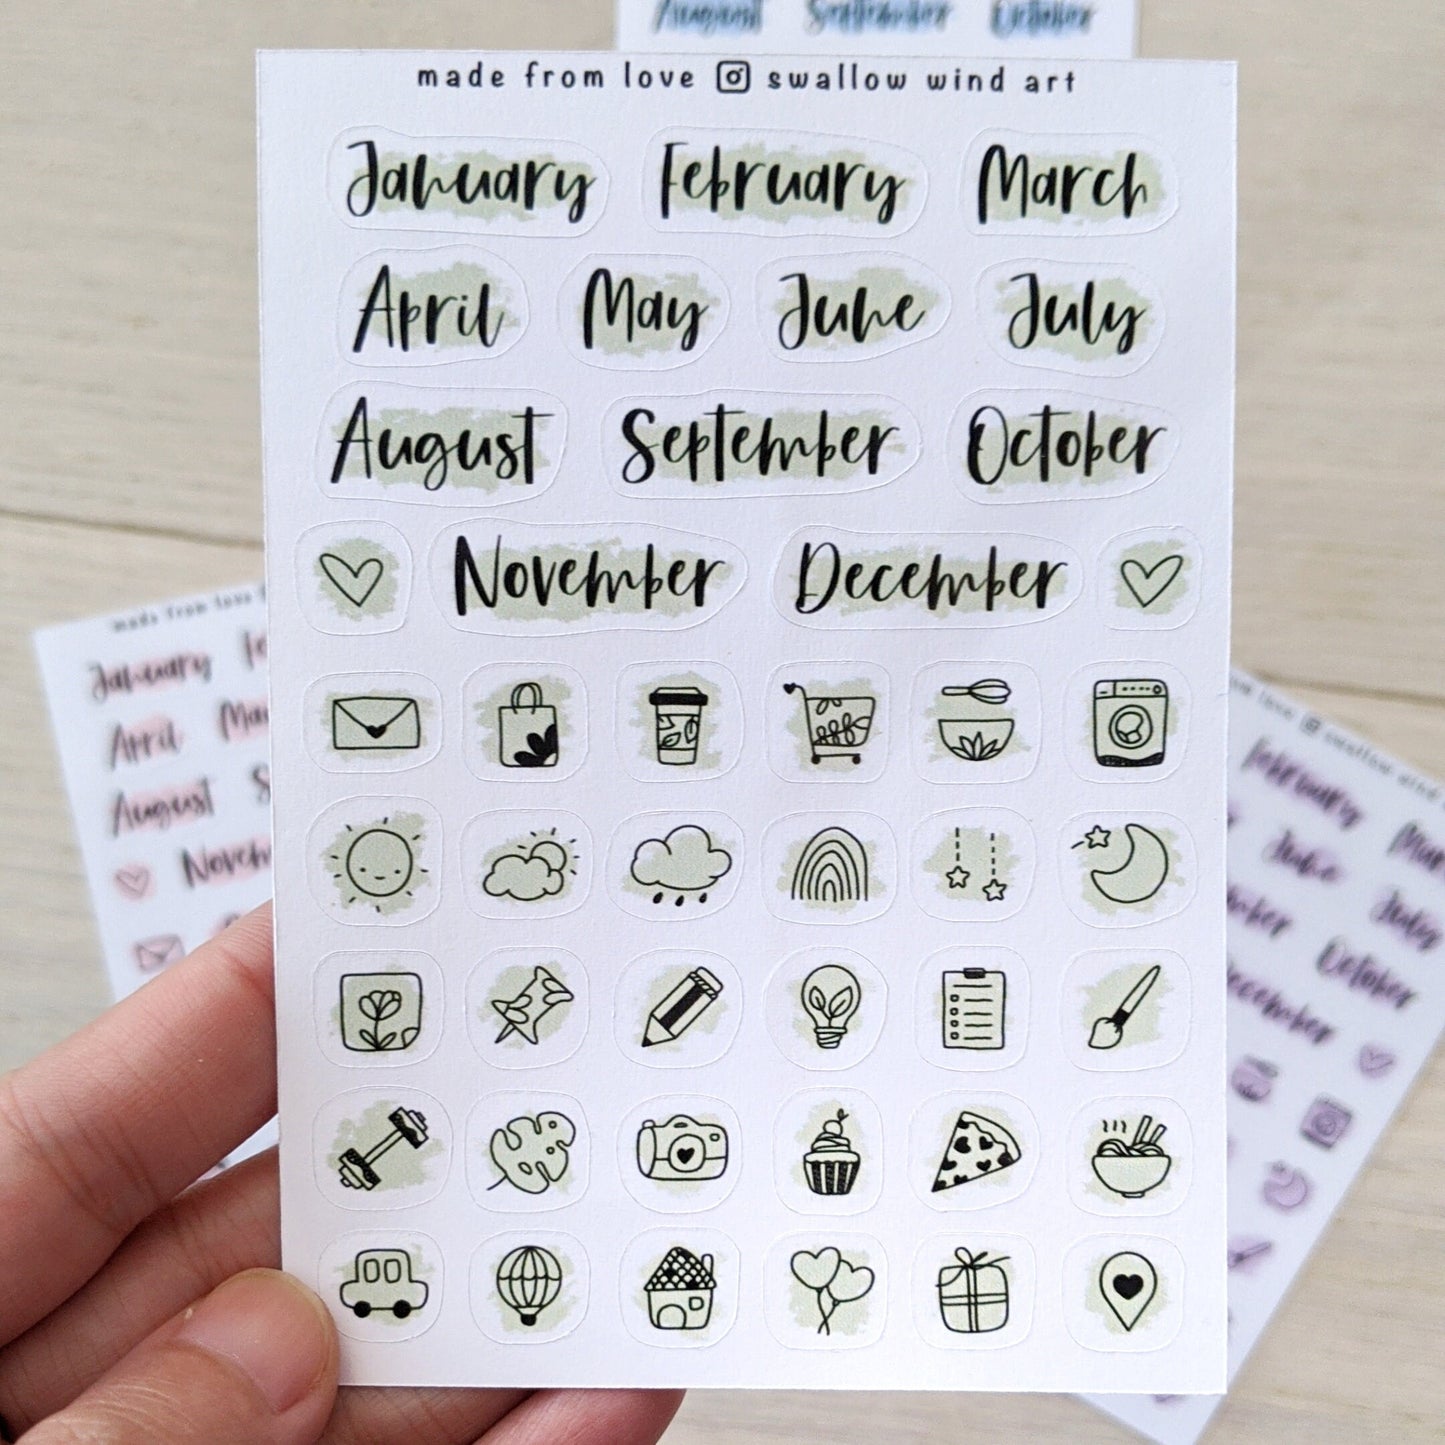 August September October
made from love swallow wind art
January February March
April May June July
August September October
November December
made from love
January
April
August
love swallow wind
February
June July
October